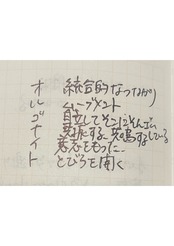 オ 統合的なつながり
ル ムーブメント
ゴ 自立してそこにそんざい
ナ 共振する、共鳴すしている
イ をもった
ト とびらを開く